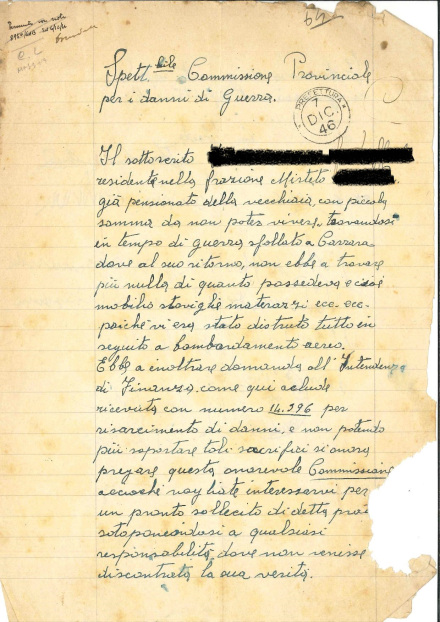 Spett.bile Commissione Provinciale
per i danni di Guerra.
PREFETTURA
7
DIC.
46
Il sottoscrito
residente nella frazione Misteto
già pensionato della vecchiaia, con piccola
somma da non poter vivere, trovandosi
in tempo di guerra sfollato a Carrara
dove al suo ritorno, non ebbe a trovare
più nulla di quanto possedeva e cioè
mobilio stoviglie materazzi ecc. ecc.
poiché vi era stato distruto tutto in
seguito a bombardamento aereo.
Ebbe a inoltrare domanda all'Intendenza
di Finanza, come qui aclude
ricevuta con numero 14.396 per
risarcimento di danni, e non potendo
più soportare tali sacrifici si onora
pregare questa onorevole Commissione
acciochè vogliate interessarvi per
un pronto sollecito di detta
sotoponendosi a qualsiasi
responsabilità, dove non venisse
riscontrata la sua verità.